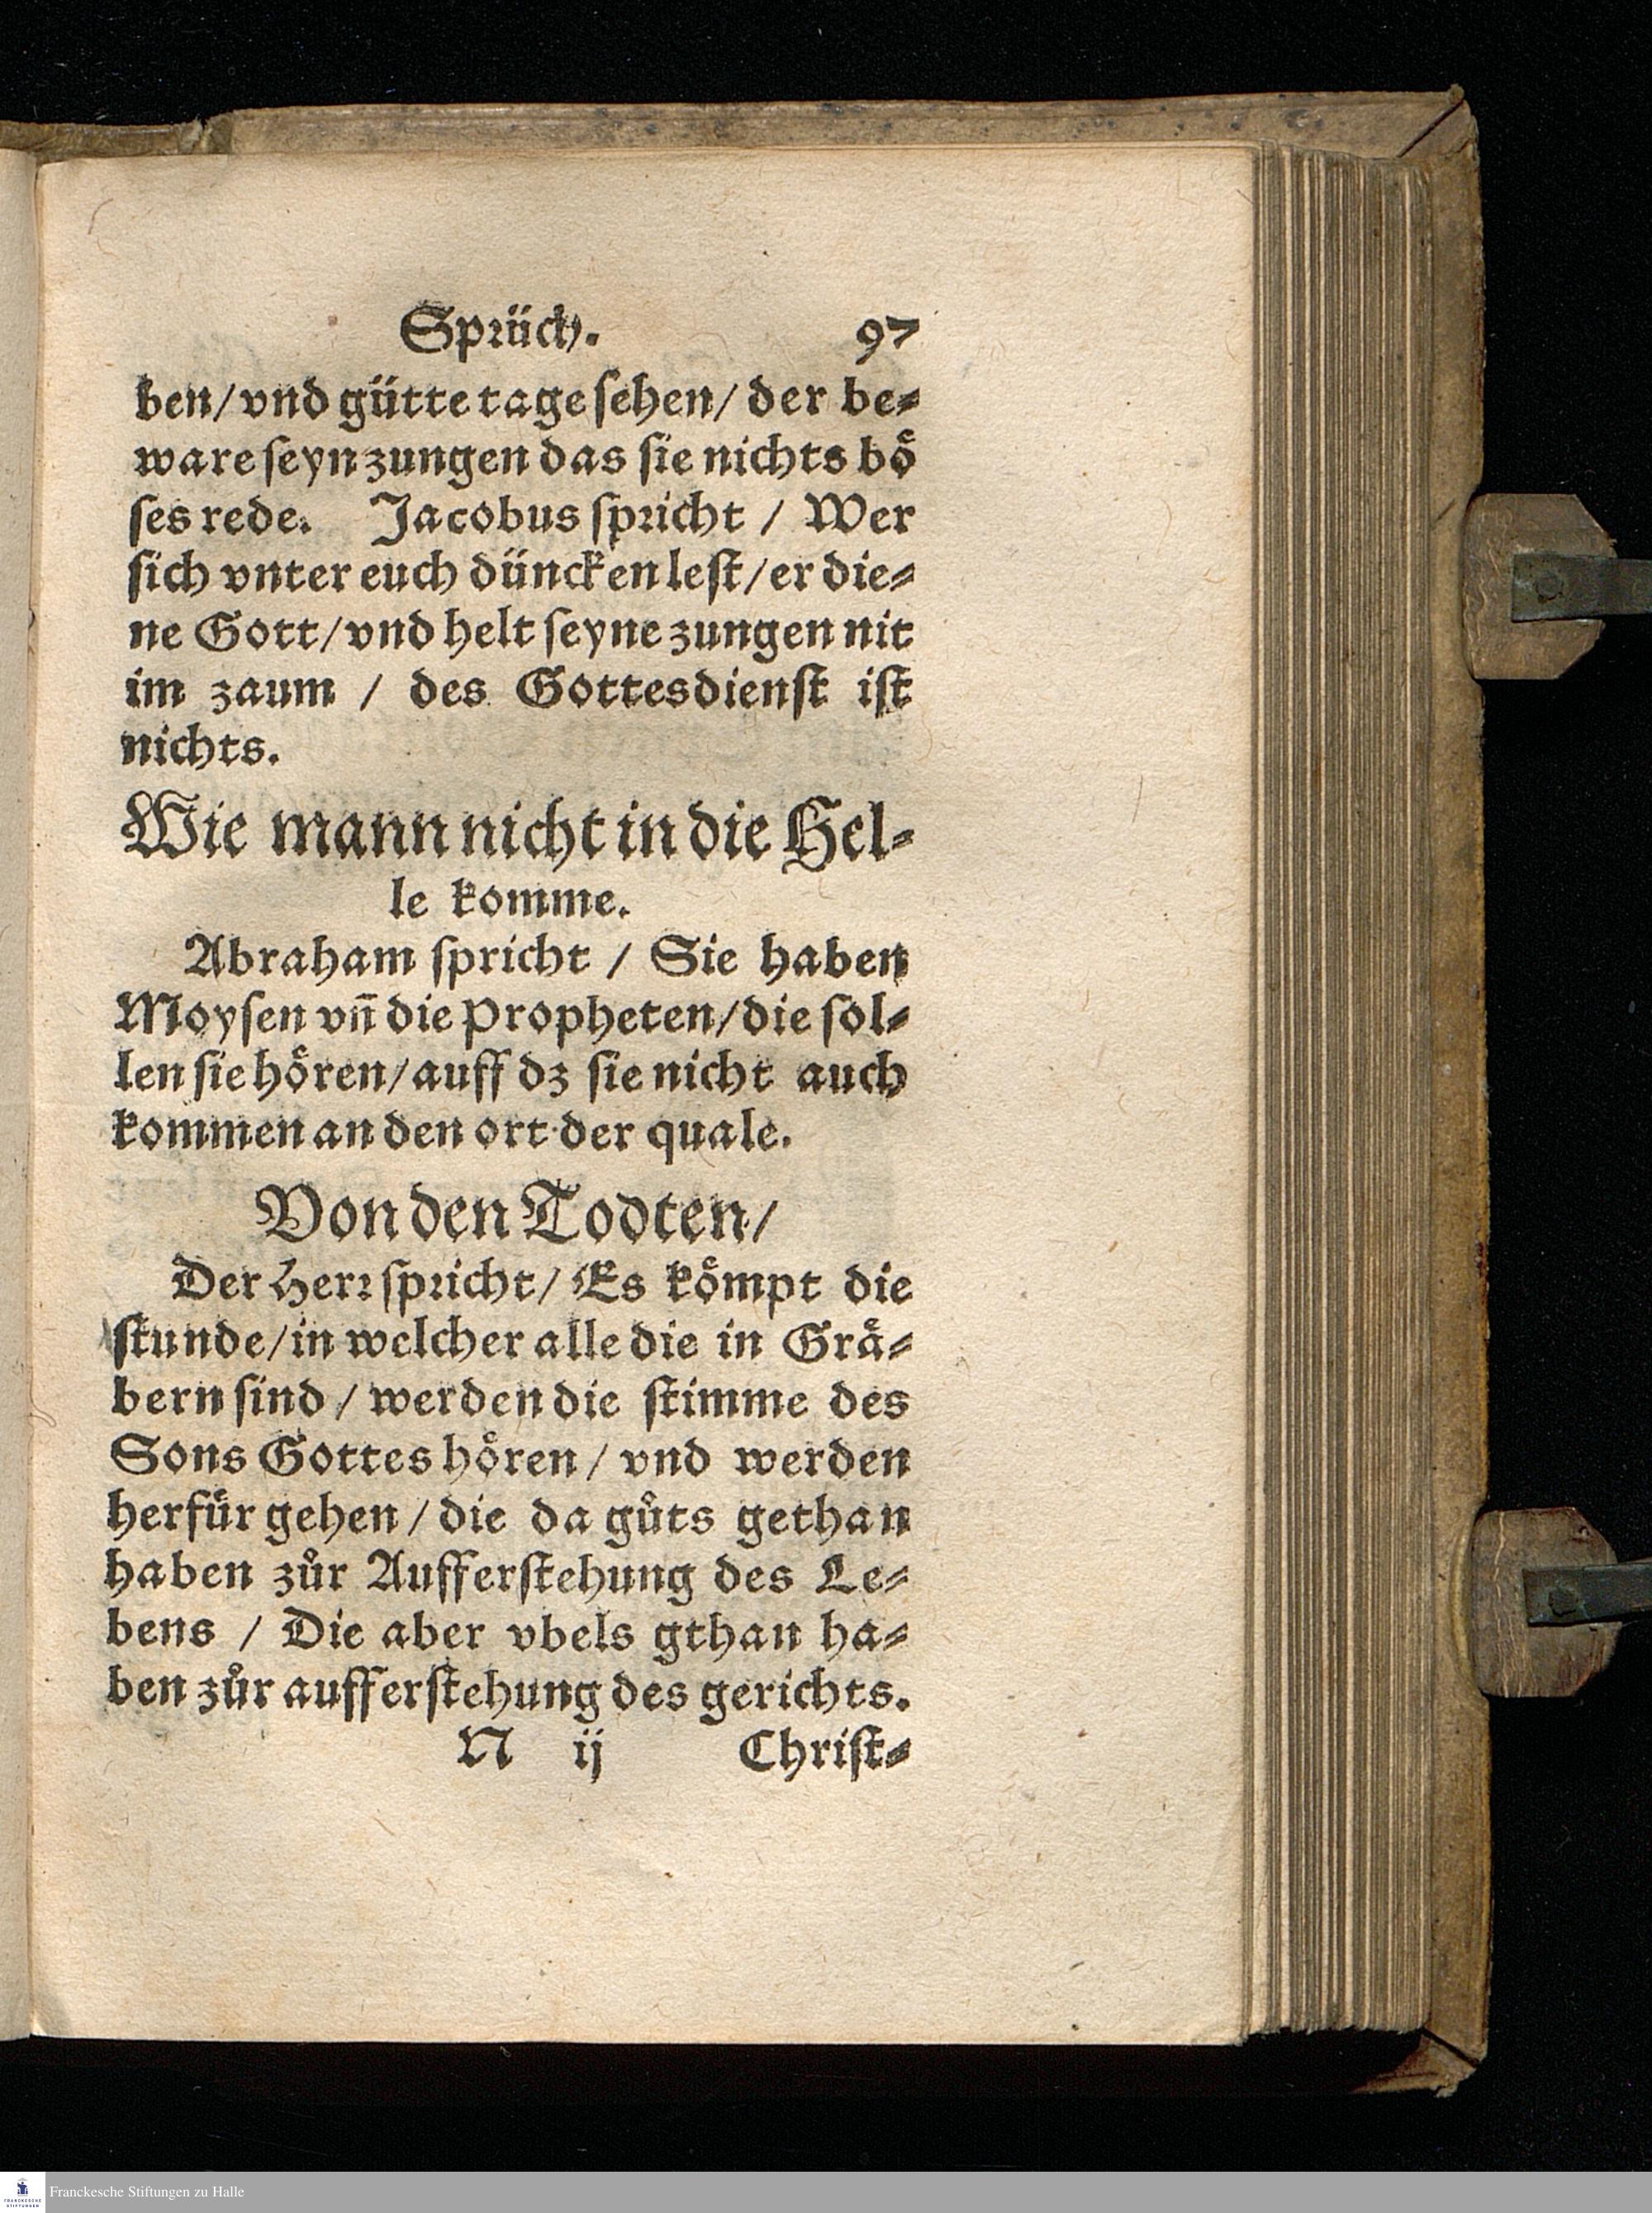 Sprüch. 97
ben/ vnd gütte tage sehen/ der be⸗
ware seyn zungen das sie nichts boͤ
ses rede. Jacobus spricht / Wer
sich vnter euch düncken lest/ er die⸗
ne Gott/ vnd helt seyne zungen nit
im zaum / des Gottesdienst ist
nichts.
Wie mann nicht in die Hel⸗
le komme.
Abraham spricht / Sie haben
Moysen vn̄ die Propheten/ die sol⸗
len sie hoͤren/ auff dz sie nicht auch
kommen an den ort der quale.
Von den Todten/
Der Herr spricht/ Es koͤmpt die
stunde/ in welcher alle die in Graͤ⸗
bern sind / werden die stimme des
Sons Gottes hoͤren / vnd werden
herfuͤr gehen / die da guͦts gethan
haben zuͦr Aufferstehung des Le⸗
bens / Die aber vbels gthan ha⸗
ben zuͦr aufferstehung des gerichts.
N ij Christ⸗
FRANCKESCHE STIFTUNGEN
Franckesche Stiftungen zu Halle